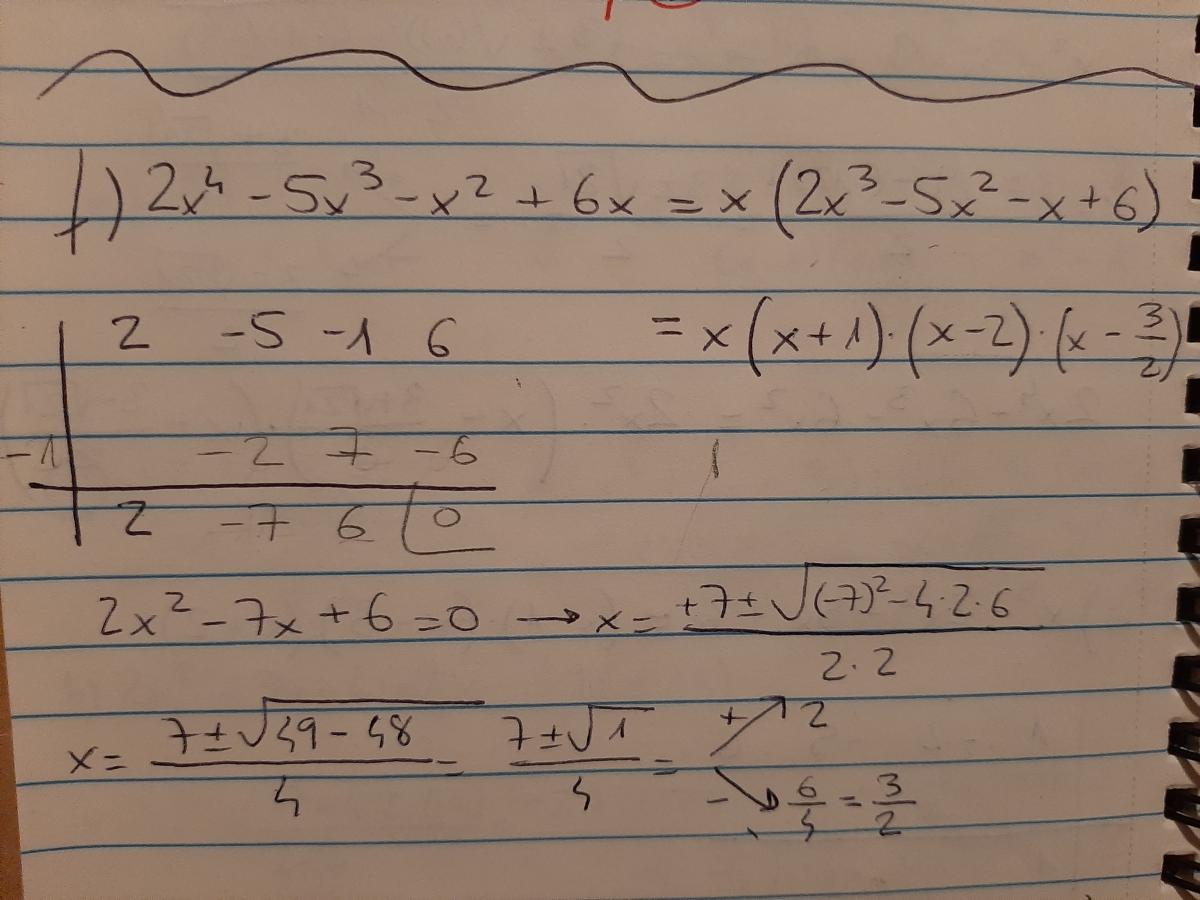 f) 2x⁴ - 5x³ - x² + 6x = x (2x³ - 5x² - x + 6)
2 -5 -1 6
= x (x + 1) · (x - 2) · (x - 3/2)
-1 -2 7 -6
2 -7 6 0
2x² - 7x + 6 = 0 → x = +7 ± √(-7)² - 4·2·6 / 2·2
x = 7 ± √49 - 48 / 4 = 7 ± √1 / 4 = + 2
- 6/4 = 3/2